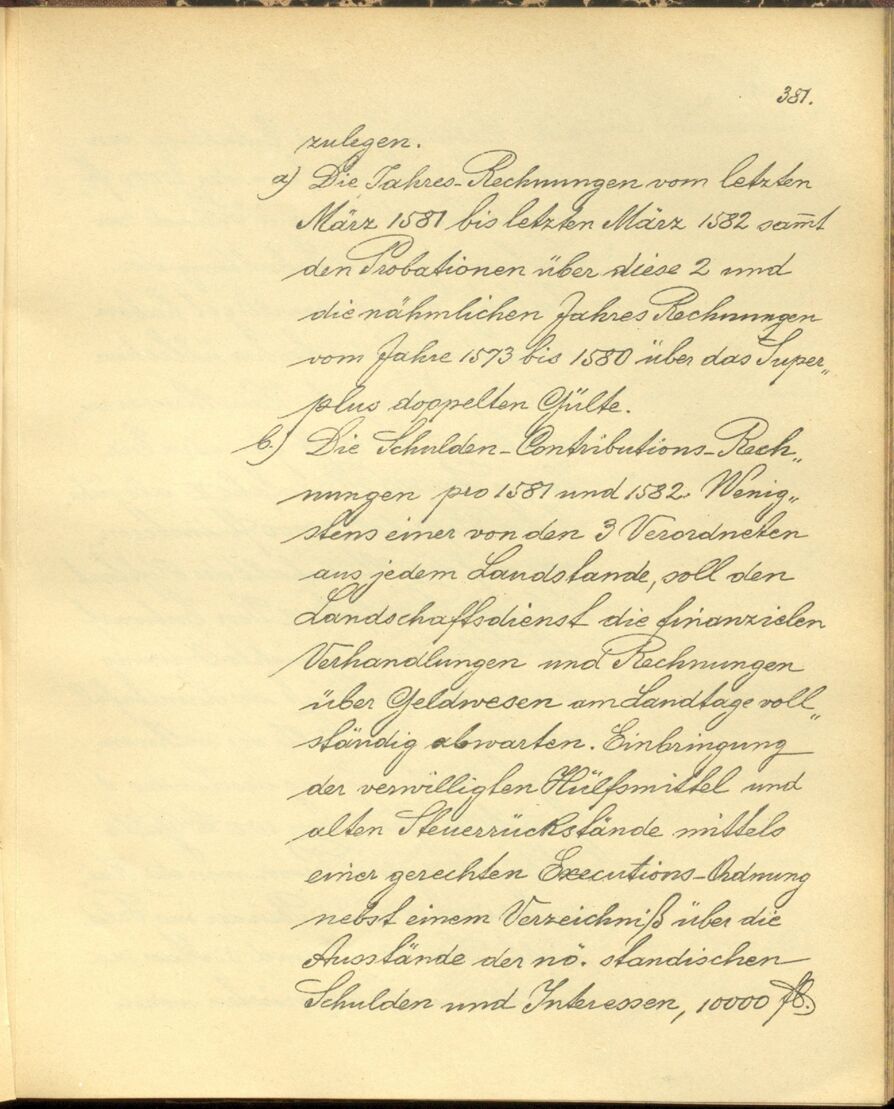 381.
zulegen.
a) Die Jahres-Rechnungen vom letzten
März 1581 bis letzten März 1582 sam̅t
den Probationen über diese 2 und
die nähmlichen Jahres Rechnungen
vom Jahre 1573 bis 1580 über das Super„
plus doppelten Gülte.
b.) Die Schulden-Contributions-Rech„
nungen pro 1581 und 1582. Wenig„
stens einer von den 3 Verordneten
aus jedem Landstande, soll den
Landschaftsdienst die finanzielen
Verhandlungen und Rechnungen
über Geldwesen am Landtage voll„
ständig abwarten. Einbringung
der verwilligten Hülfsmittel und
alten Steuerrückstände mittels
einer gerechten Executions-Ordnung
nebst einem Verzeichniß über die
Ausstände der nö. standischen
Schulden und Interessen, 10000